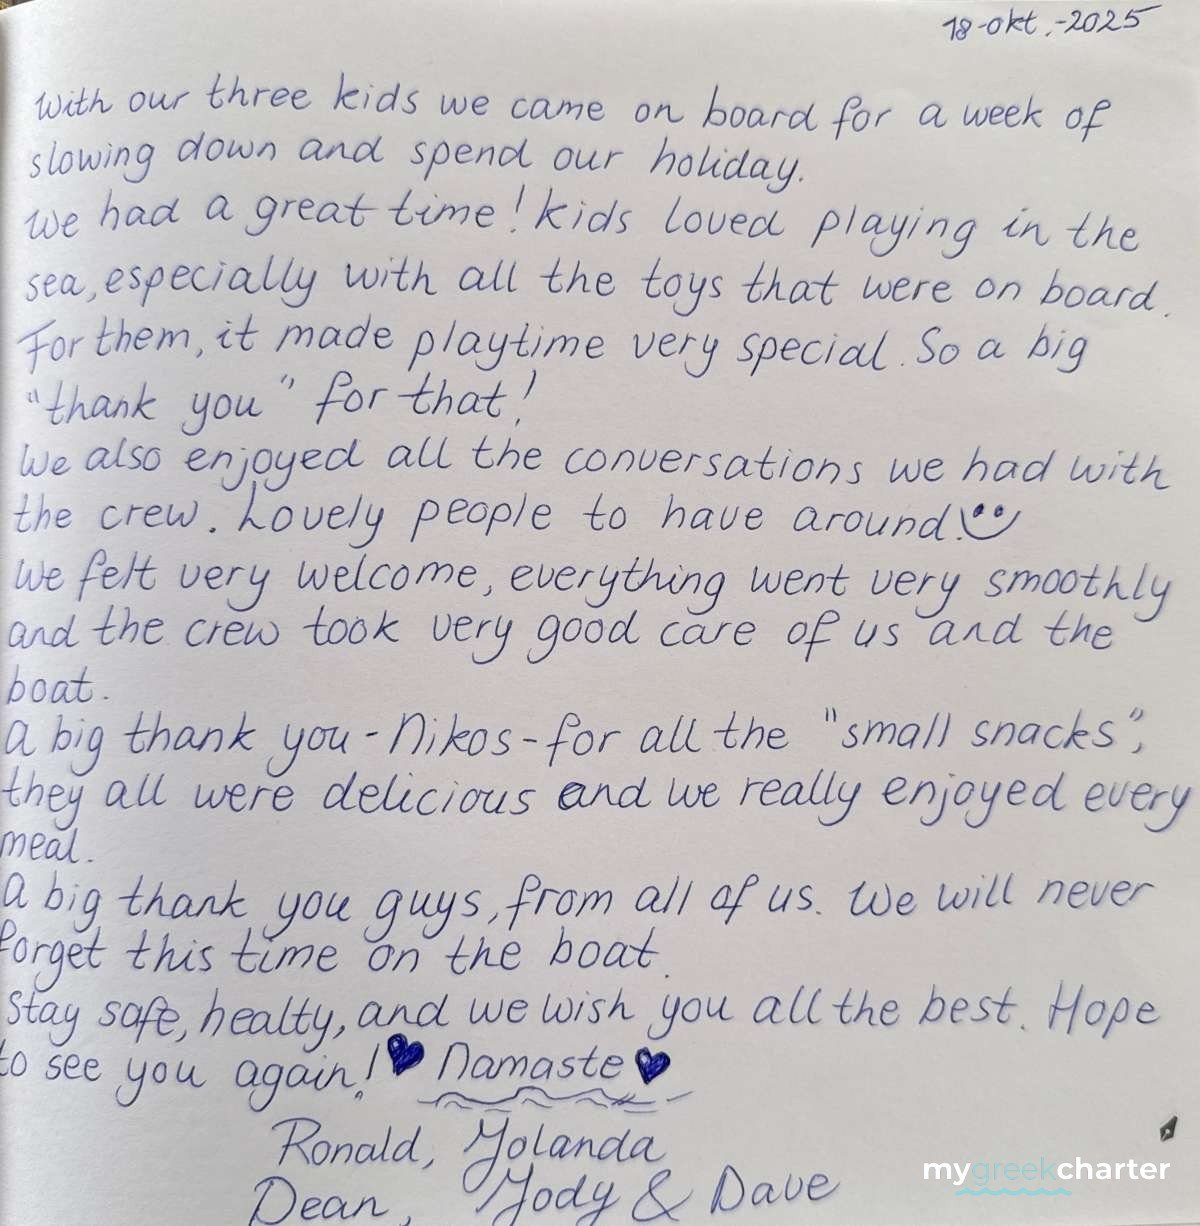 18-okt.-2025
With our three kids we came on board for a week of
slowing down and spend our holiday.
We had a great time! Kids loved playing in the
sea, especially with all the toys that were on board.
For them, it made playtime very special. So a big
"thank you" for that!
We also enjoyed all the conversations we had with
the crew. Lovely people to have around!
We felt very welcome, everything went very smoothly
and the crew took very good care of us and the
boat.
A big thank you - Nikos - for all the "small snacks",
they all were delicious and we really enjoyed every
meal.
A big thank you guys, from all of us. We will never
forget this time on the boat.
Stay safe, healty, and we wish you all the best. Hope
to see you again! Namaste
Ronald, Yolanda
Dean, Jody & Dave
mygreekcharter